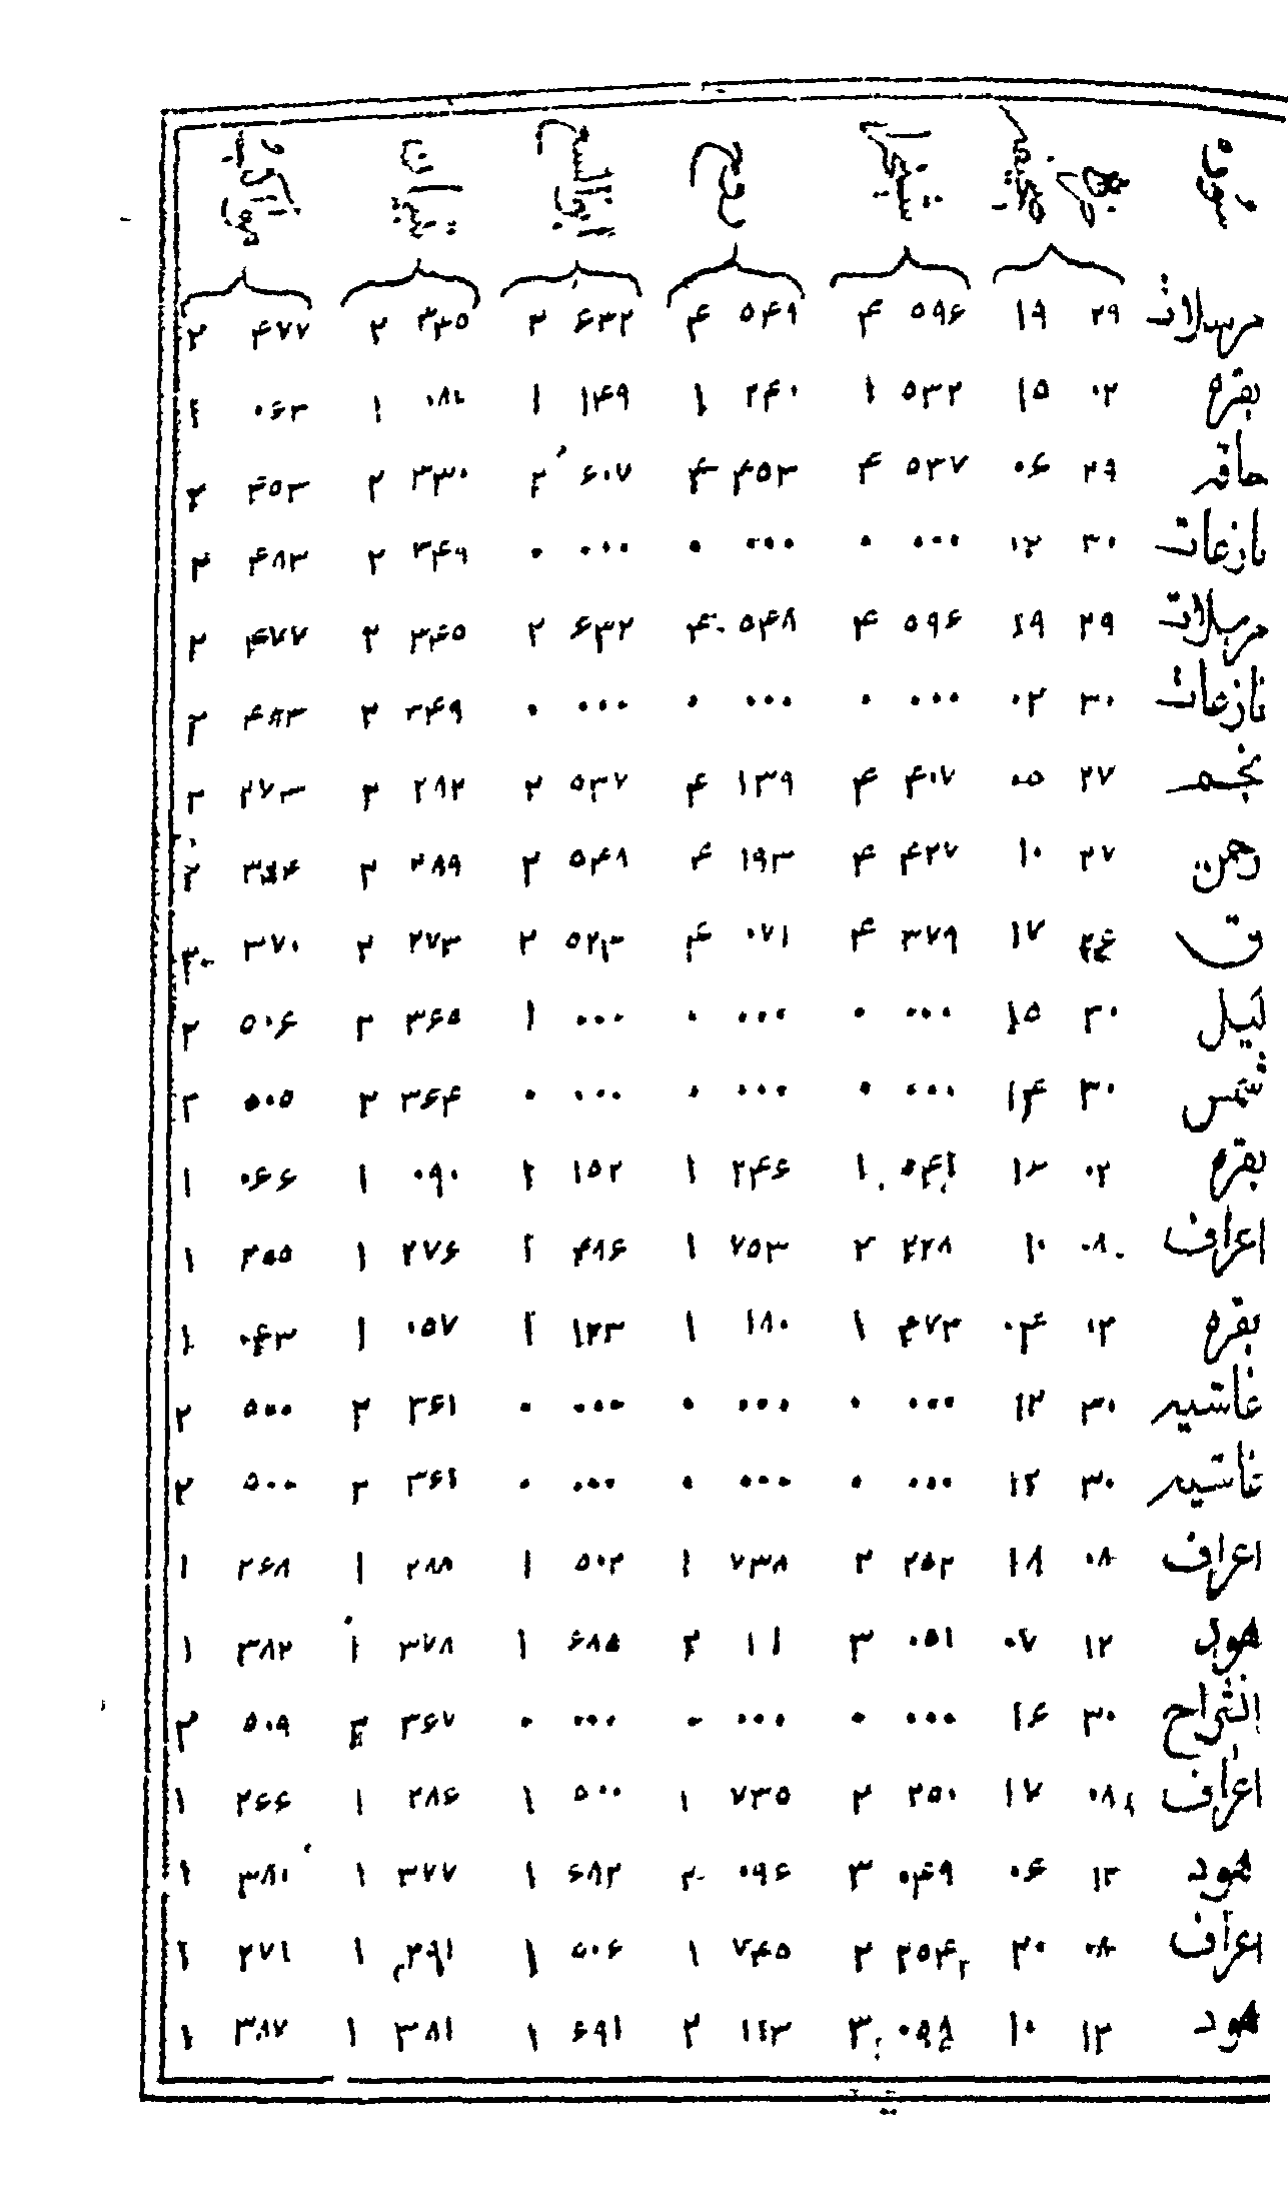 سوره
مرسلات ۲۹ ۱۹ ۵۹۶ ۴ ۵۴۹ ۴ ۶۳۲ ۲ ۳۴۵ ۲ ۴۷۷ ۲
بقره ۰۲ ۱۵ ۵۳۲ ۱ ۲۴۰ ۱ ۱۴۹ ۱ ۱ ۰۶۳ ۱
حاقه ۲۹ ۰۶ ۵۳۷ ۴ ۴۵۳ ۴ ۶۰۷ ۲ ۳۳۰ ۲ ۴۵۳ ۲
نازعات ۳۰ ۱۲ ۰۰۰ ۰ ۰۰۰ ۰ ۰۰۰ ۰ ۳۴۹ ۲ ۴۸۳ ۲
مرسلات ۲۹ ۱۹ ۵۹۶ ۴ ۵۴۸ ۴ ۶۳۲ ۲ ۳۴۵ ۲ ۴۷۷ ۲
نازعات ۳۰ ۰۲ ۰۰۰ ۰ ۰۰۰ ۰ ۰۰۰ ۰ ۳۴۹ ۲ ۴۸۳ ۲
نجم ۲۷ ۰۵ ۴۰۷ ۴ ۱۳۹ ۴ ۵۳۷ ۲ ۲۸۲ ۲ ۲۷۳ ۲
رحمن ۲۷ ۱۰ ۴۲۷ ۴ ۱۹۳ ۴ ۵۴۸ ۲ ۲۸۹ ۲ ۲
ق ۲۶ ۱۷ ۳۷۹ ۴ ۰۷۱ ۴ ۵۲۳ ۲ ۲۷۳ ۲ ۳۷۰ ۲
لیل ۳۰ ۱۵ ۰۰۰ ۰ ۰۰۰ ۰ ۰۰۰ ۱ ۳۶۵ ۲ ۵۰۶ ۲
شمس ۳۰ ۱۴ ۰۰۰ ۰ ۰۰۰ ۰ ۰۰۰ ۰ ۳۶۴ ۲ ۵۰۵ ۲
بقره ۰۲ ۱۳ ۵۴۱ ۱ ۲۴۶ ۱ ۱۵۲ ۱ ۰۹۰ ۱ ۰۶۶ ۱
اعراف ۰۸ ۱۰ ۲۲۸ ۲ ۷۵۳ ۱ ۴۸۶ ۱ ۲۷۶ ۱ ۲۵۵ ۱
بقره ۰۲ ۰۴ ۴۷۳ ۱ ۱۸۰ ۱ ۱۲۳ ۱ ۰۵۷ ۱ ۰۴۳ ۱
غاشیه ۳۰ ۱۲ ۰۰۰ ۰ ۰۰۰ ۰ ۰۰۰ ۰ ۳۶۱ ۲ ۵۰۰ ۲
غاشیه ۳۰ ۱۲ ۰۰۰ ۰ ۰۰۰ ۰ ۰۰۰ ۰ ۳۶۱ ۲ ۵۰۰ ۲
اعراف ۰۸ ۱۸ ۲۵۲ ۲ ۷۳۸ ۱ ۵۰۲ ۱ ۲۸۸ ۱ ۲۶۸ ۱
هود ۱۲ ۰۷ ۰۵۱ ۳ ۱۱ ۲ ۶۸۵ ۱ ۳۷۸ ۱ ۳۸۲ ۱
انشراح ۳۰ ۱۶ ۰۰۰ ۰ ۰۰۰ ۰ ۰۰۰ ۰ ۳۶۷ ۲ ۵۰۹ ۲
اعراف ۰۸ ۱۷ ۲۵۰ ۲ ۷۳۵ ۱ ۵۰۰ ۱ ۲۸۶ ۱ ۲۶۶ ۱
هود ۱۲ ۰۶ ۰۴۹ ۳ ۰۹۶ ۲ ۶۸۲ ۱ ۳۷۷ ۱ ۳۸۰ ۱
اعراف ۰۸ ۲۰ ۲۵۴ ۲ ۷۴۵ ۱ ۵۰۶ ۱ ۲۹۱ ۱ ۲۷۱ ۱
هود ۱۲ ۱۰ ۳ ۱۱۳ ۲ ۶۹۱ ۱ ۳۸۱ ۱ ۳۸۷ ۱